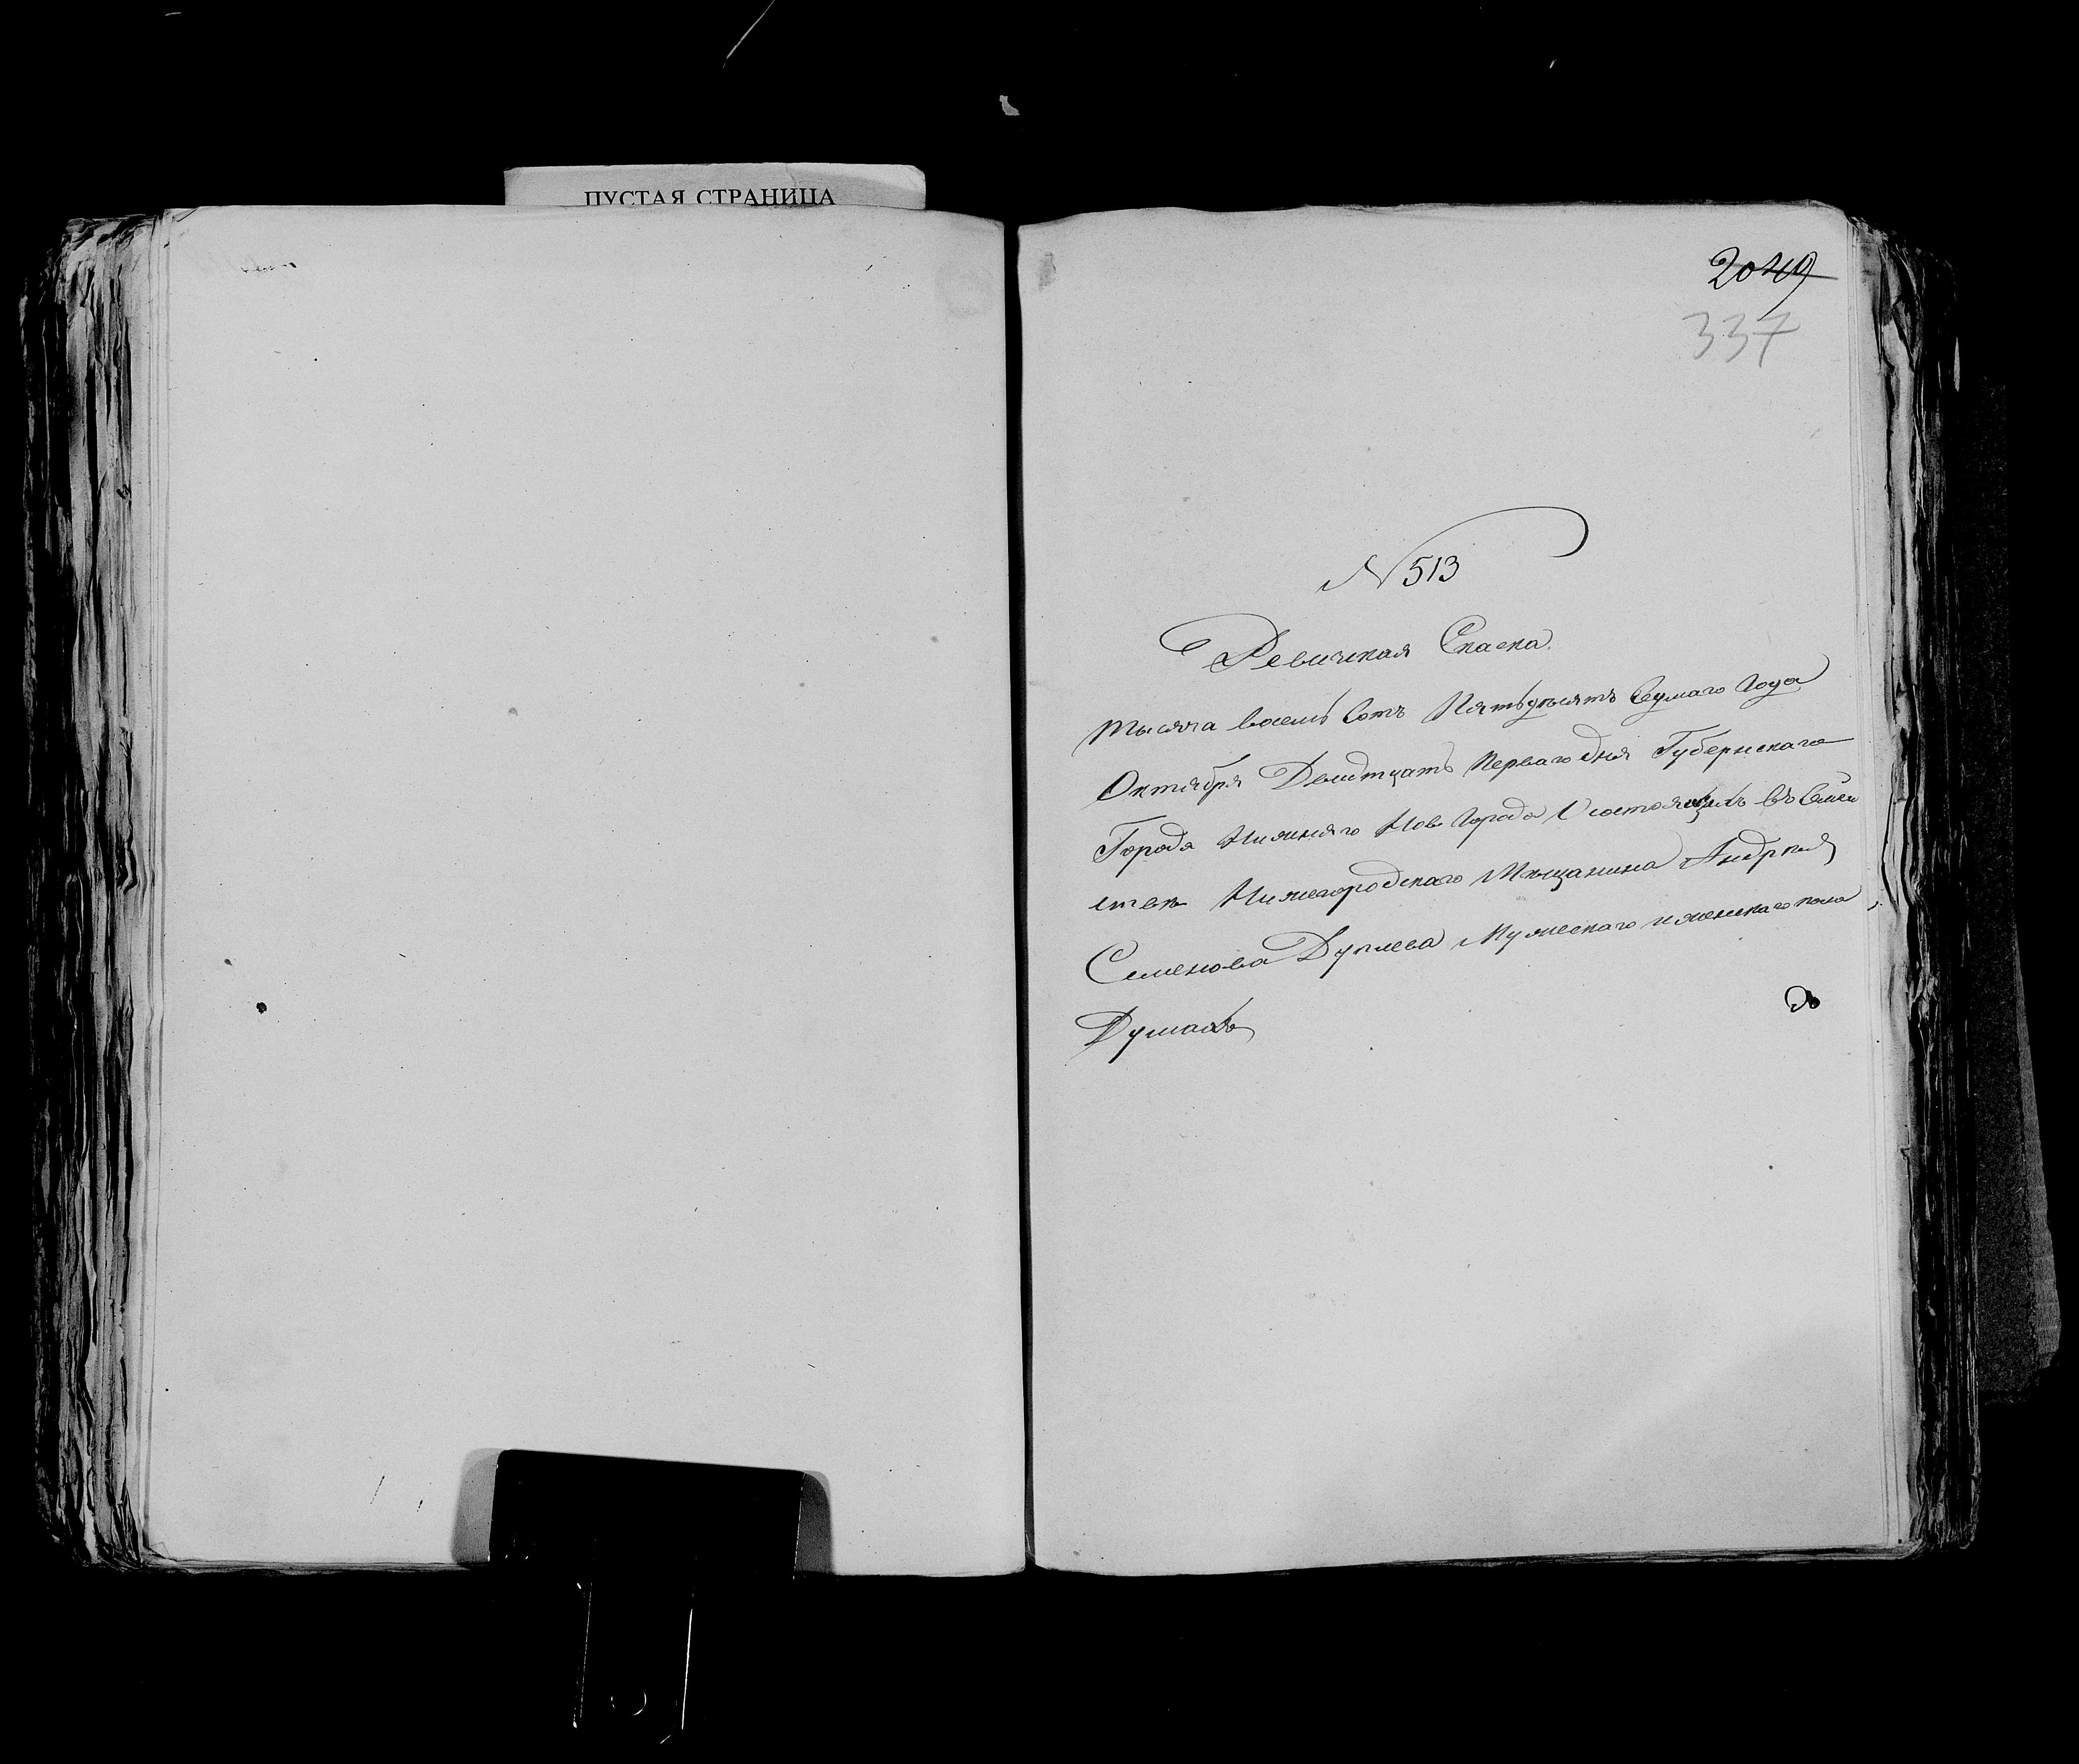 ПУСТАЯ СТРАНИЦА
2049
337
N 513
Ревичкая Скаска.
Тысяча Восемь Сотъ Пятьдесятъ Седмаго Года
Октября Двидтцать Перваго дня Губернскаго
Города Нижняго Нов Города О состоящихъ въ Семей
стве Нижегородскаго Мѣщанина Андрея
Семенова Мужескаго и женскаго пола
Душахъ